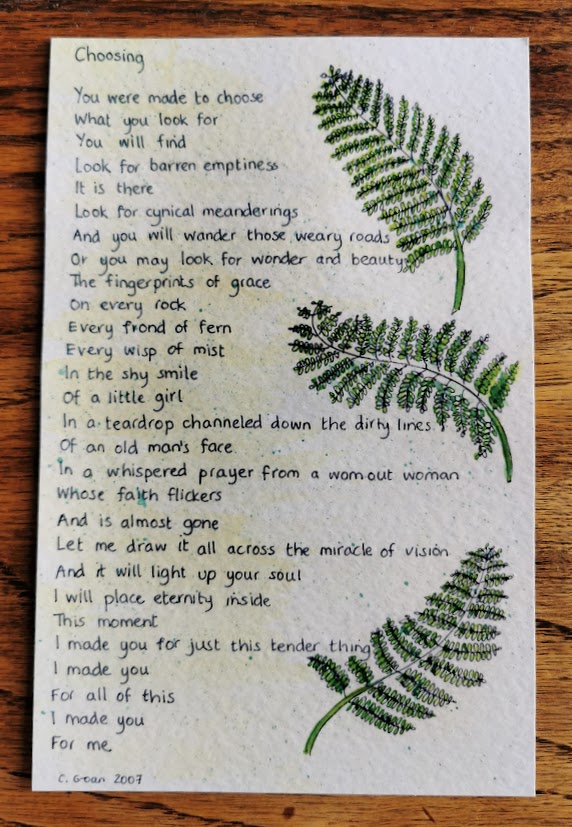 Choosing
You were made to choose
What you look for
You will find
Look for barren emptiness
It is there
Look for cynical meanderings
And you will wander those weary roads
Or you may look for wonder and beauty
The fingerprints of grace
On every rock
Every frond of fern
Every wisp of mist
In the shy smile
Of a little girl
In a teardrop channeled down the dirty lines
Of an old man's face
In a whispered prayer from a worn out woman
Whose faith flickers
And is almost gone
Let me draw it all across the miracle of vision
And it will light up your soul
I will place eternity inside
This moment
I made you for just this tender thing
I made you
For all of this
I made you
For me
C. Goan 2007